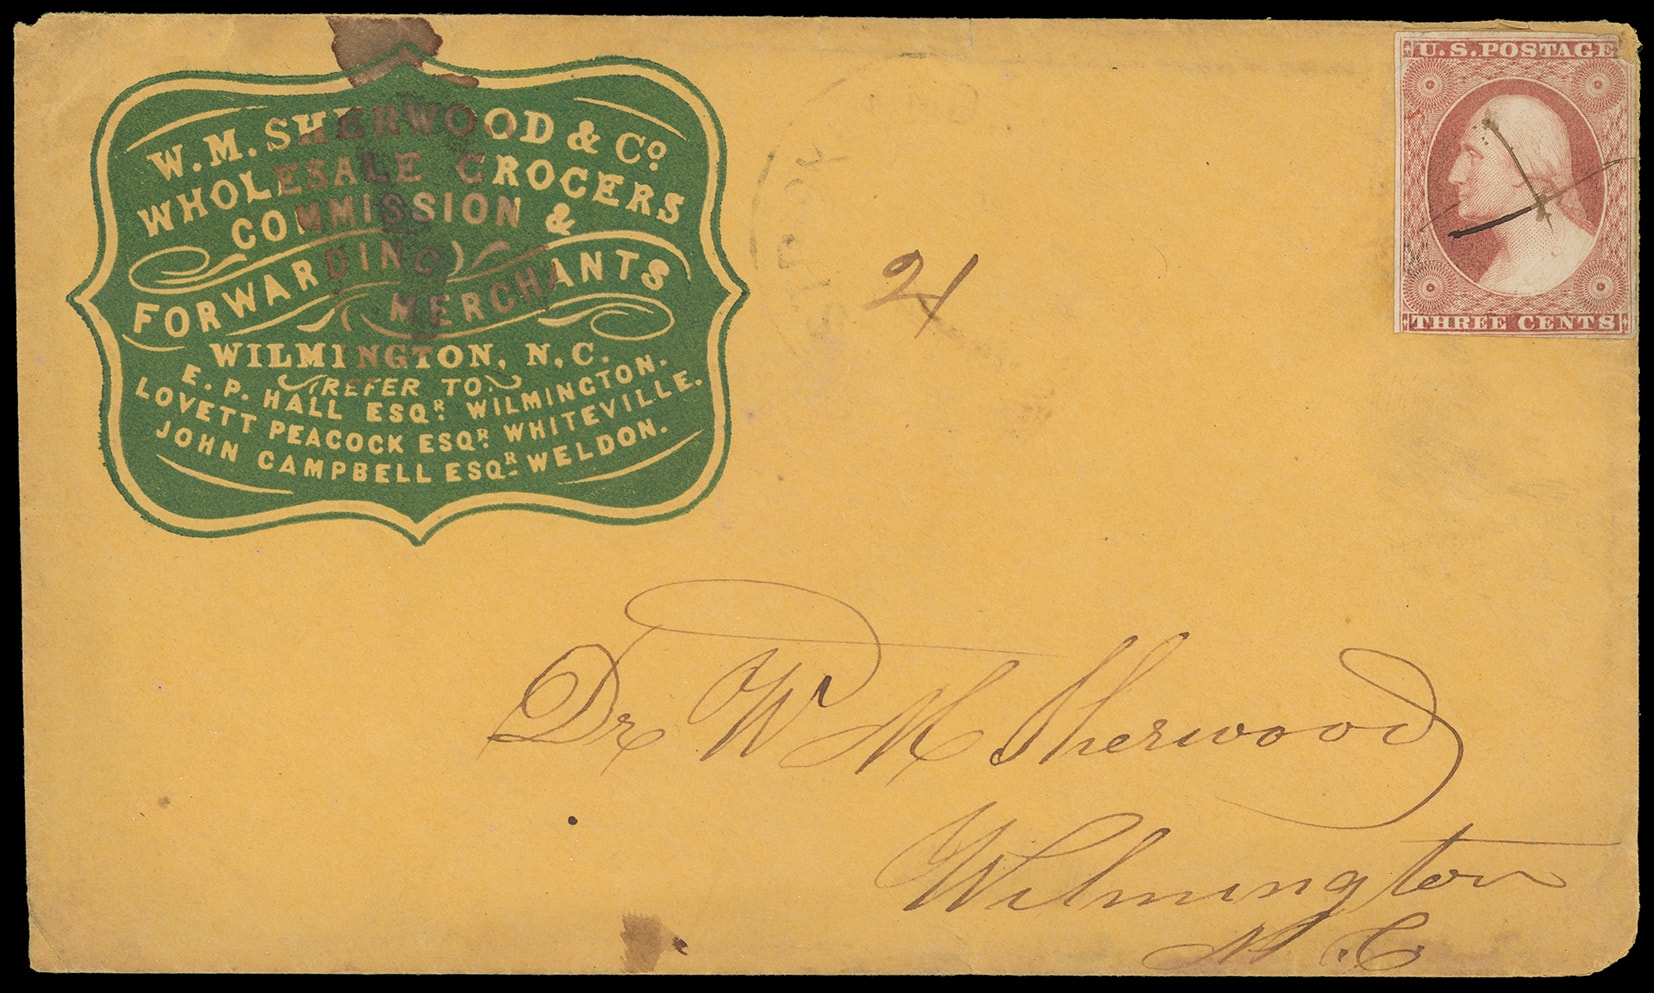 W. M. SHERWOOD & Cº.
WHOLESALE GROCERS
COMMISSION &
FORWARDING
MERCHANTS
WILMINGTON, N. C.
REFER TO
E. P. HALL ESQᴿ. WILMINGTON.
LOVETT PEACOCK ESQᴿ. WHITEVILLE.
JOHN CAMPBELL ESQᴿ. WELDON.
U. S. POSTAGE
THREE CENTS
21
Dr W M Sherwood
Wilmington
N. C.